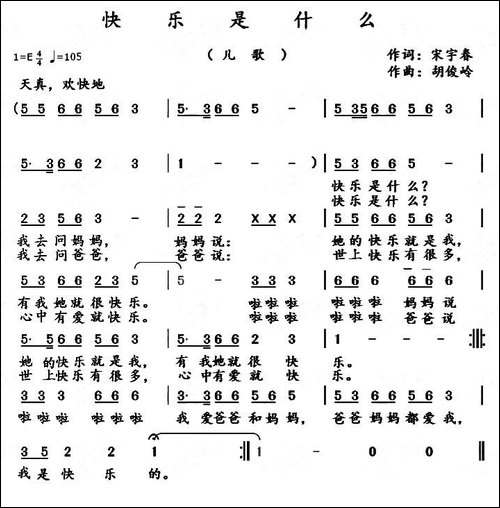 快乐是什么
1=E 4/4 ♩=105 （儿歌） 作词：宋宇春
作曲：胡俊岭
天真，欢快地
(5 5 6 6 5 6 3 | 5· 3 6 6 5 - | 5 35 6 6 5 6 3 |
5· 3 6 6 2 3 | 1 - - - ) | 5 3 6 6 5 - |
快乐是什么？
快乐是什么？
2 3 5 6 3 - | 2 2 2 X X X | 5 5 6 6 5 6 3 |
我去问妈妈， 妈妈说： 她的快乐就是我，
我去问爸爸， 爸爸说： 世上快乐有很多，
5 3 6 6 2 3 5 | 5 - 3 3 3 | 6 6 6 6 6 6 |
有我她就很快乐。 啦啦啦 啦啦啦 妈妈说
心中有爱就快乐。 啦啦啦 啦啦啦 爸爸说
5· 5 6 6 5 6 3 | 5· 3 6 6 2 3 | 1 - - - :||:
她的快乐就是我， 有我她就很快 乐。
世上快乐有很多， 心中有爱就快 乐。
3 3 3 6 6 6 | 5· 3 6 6 5 6 3 | 5· 3 6 6 5 6 3 |
啦啦啦 啦啦啦 我爱爸爸和妈妈， 爸爸妈妈都爱我，
3 5 2 2 1 :|| 1 - 0 0 ||
我是快乐的。